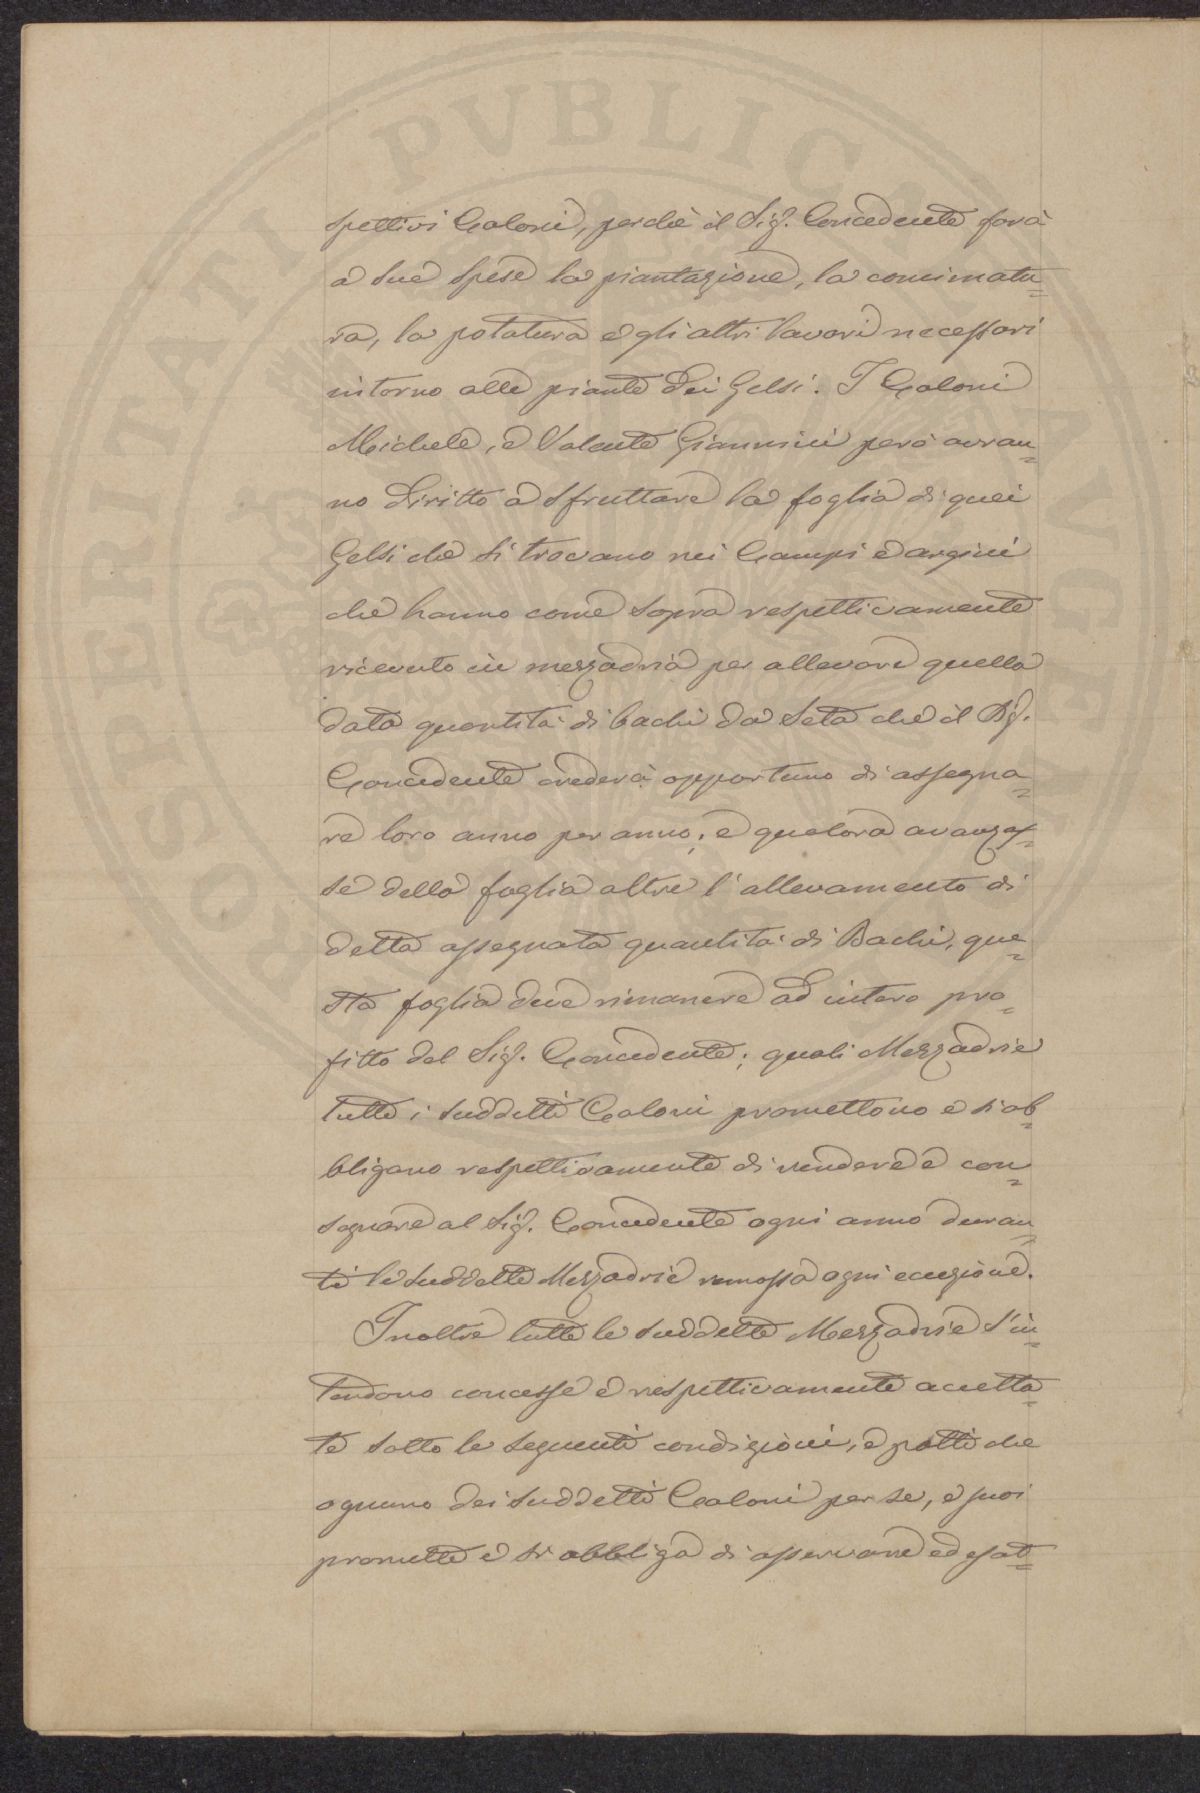 spettivi Coloni, perchè il Sig. Concedente farà
a sue spese la piantagione, la concimatu=
ra, la potatura e gli altri lavori necessari
intorno alle piante dei Gelsi. I Coloni
Michele, e Valente Giannini però avran=
no diritto a sfruttare la foglia di quei
Gelsi che si trovano nei Campi e argini
che hanno come sopra respettivamente
ricevuto in mezzadria per allevare quella
data quantità di bachi da Seta che il Sig.
Concedente crederà opportuno di assegna=
re loro anno per anno; e qualora avanzas=
se della foglia oltre l'allevamento di
detta assegnata quantità di Bachi, que=
sta foglia deve rimanere ad intero pro=
fitto del Sig. Concedente; quali Mezzadrie
tutte i suddetti Coloni promettono e si ob=
bligano respettivamente di rendere e con=
segnare al Sig. Concedente ogni anno duran=
te le suddette Mezzadrie remossa ogni eccezione.
Inoltre tutte le suddette Mezzadrie s'in=
tendono concesse e respettivamente accetta=
te sotto le seguenti condizioni, e patti che
ognuno dei suddetti Coloni per se, e suoi
promette e si obbliga di osservare ed esat=
PVBLIC